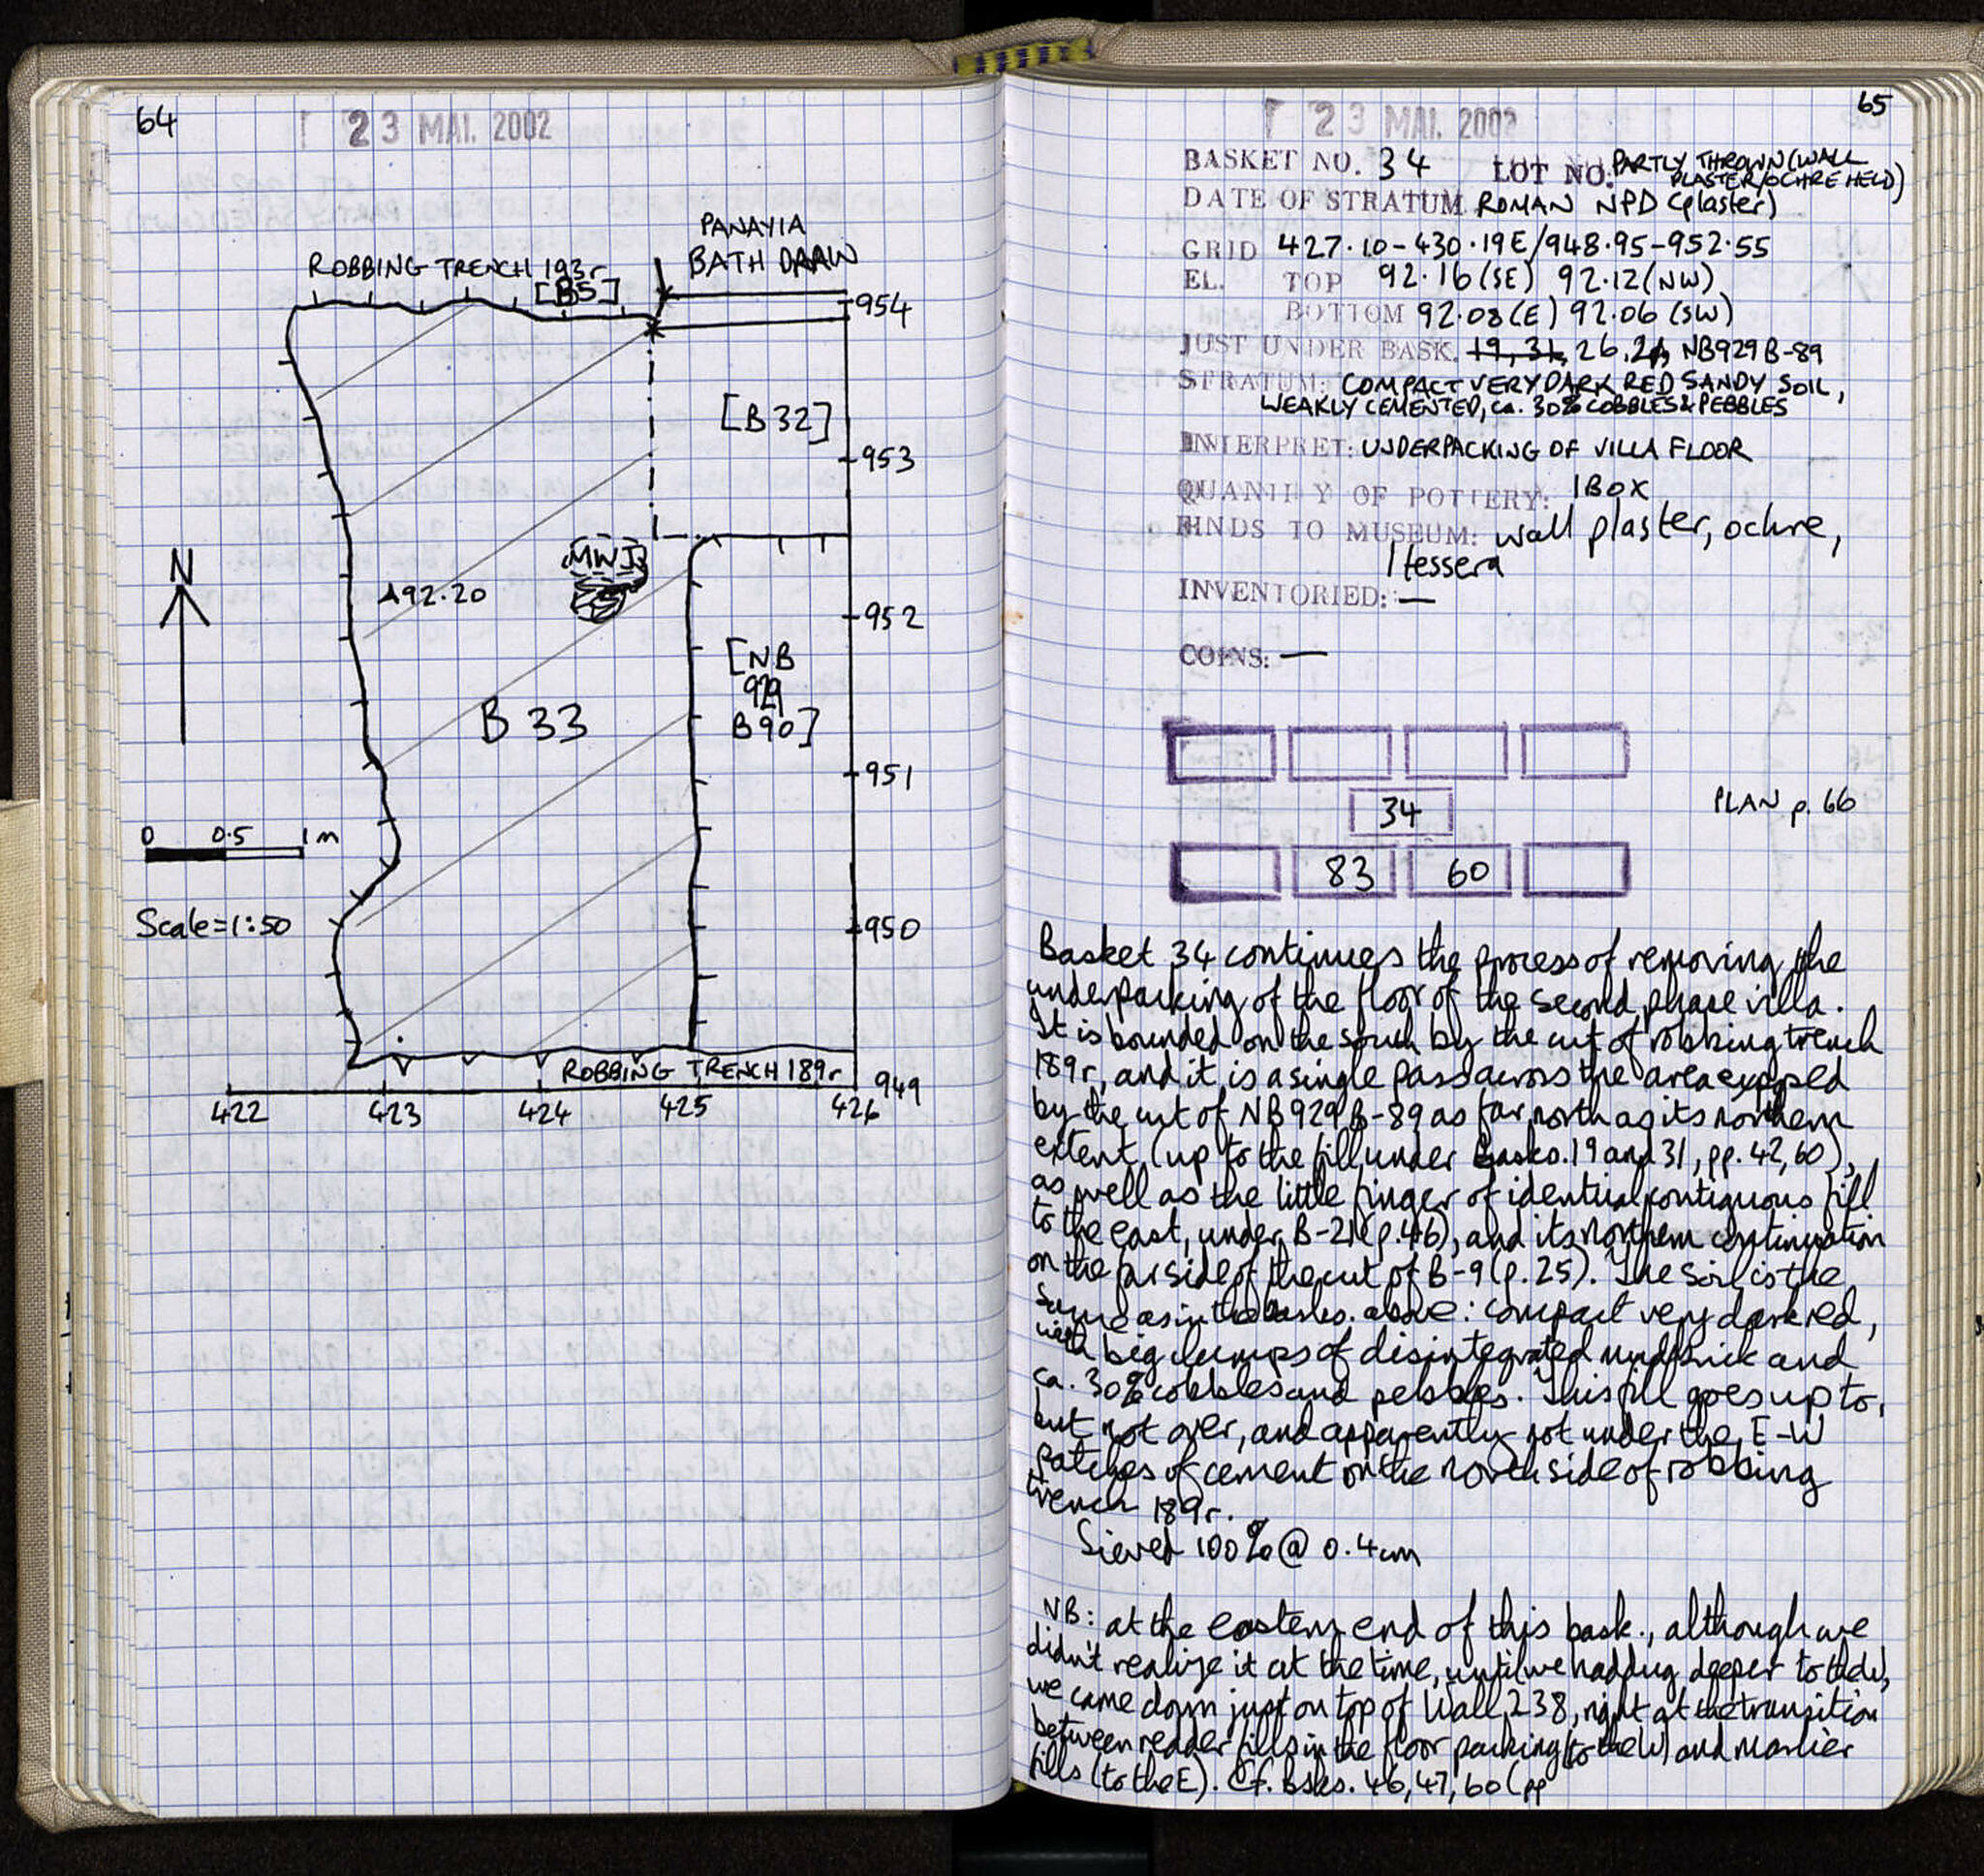 64
23 MAI. 2002
PANAYIA
BATH DRAIN
ROBBING TRENCH 193r
[B5]
954
[B32]
953
N
MWJ
92.20
952
[NB
929
B90]
B 33
951
0 0.5 1m
Scale=1:50
950
ROBBING TRENCH 189r
949
422 423 424 425 426
65
23 MAI. 2002
BASKET NO. 34 LOT NO: PARTLY THROWN (WALL
PLASTER/OCHRE HELD)
DATE OF STRATUM ROMAN NPD (plaster)
GRID 427.10-430.19E/948.95-952.55
EL. TOP 92.16 (SE) 92.12 (NW)
BOTTOM 92.08 (E) 92.06 (SW)
JUST UNDER BASK. 19, 31, 26, 21, NB929 B-89
STRATUM: COMPACT VERY DARK RED SANDY SOIL,
WEAKLY CEMENTED, ca. 30% COBBLES & PEBBLES
INTERPRET: UNDERPACKING OF VILLA FLOOR
QUANTITY OF POTTERY: 1 BOX
FINDS TO MUSEUM: wall plaster, ochre,
1 tessera
INVENTORIED: —
COINS: —
34
PLAN p. 66
83 60
Basket 34 continues the process of removing the
underpacking of the floor of the second phase villa.
It is bounded on the south by the cut of robbing trench
189r, and it is a single pass across the area exposed
by the cut of NB929 B-89 as far north as its northern
extent (up to the fill under Basks. 19 and 31, pp. 42, 60),
as well as the little finger of identical contiguous fill
to the east, under B-21 (p.46), and its northern continuation
on the far side of the cut of B-9 (p.25). The soil is the
same as in the basks. above: compact very dark red,
with big clumps of disintegrated mudbrick and
ca. 30% cobbles and pebbles. This fill goes up to,
but not over, and apparently not under the E-W
patches of cement on the north side of robbing
trench 189r.
Sieved 100% @ 0.4cm
NB: at the eastern end of this bask., although we
didn't realize it at the time, until we had dug deeper to the W,
we came down just on top of Wall 238, right at the transition
between redder fills in the floor packing (to the W) and marlier
fills (to the E). Cf. Bsks. 46, 47, 60 (pp